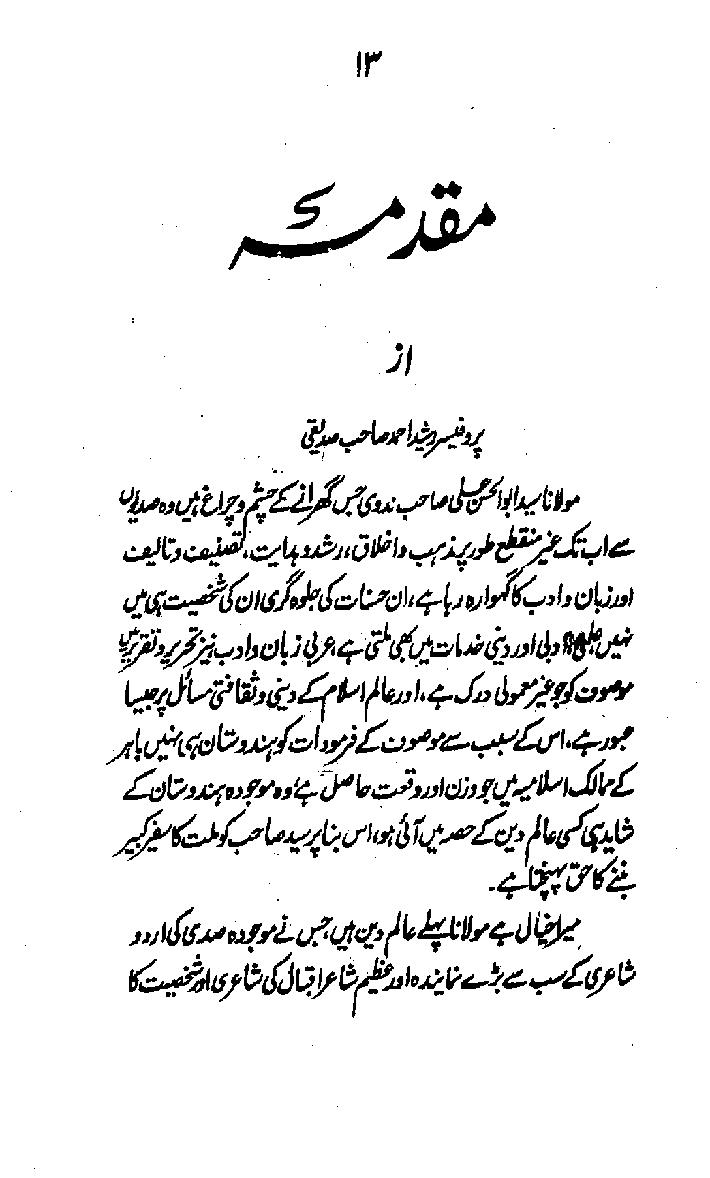 ۱۳
مقدمہ
از
پروفیسر رشید احمد صاحب صدیقی
مولانا سید ابوالحسن علی صاحب ندوی جس گھرانے کے چشم و چراغ ہیں وہ صدیوں
سے اب تک غیر منقطع طور پر مذہب و اخلاق، رشد و ہدایت، تصنیف و تالیف
اور زبان و ادب کا گہوارہ رہا ہے، ان حسنات کی جلوہ گری ان کی شخصیت ہی میں
نہیں علمی ادبی اور دینی خدمات میں بھی ملتی ہے، عربی زبان و ادب نیز تحریر و تقریر میں
موصوف کو جو غیر معمولی درک ہے، اور عالم اسلام کے دینی و ثقافتی مسائل پر جیسا
عبور ہے، اس کے سبب سے موصوف کے فرمودات کو ہندوستان ہی نہیں باہر
کے ممالک اسلامیہ میں جو وزن اور وقعت حاصل ہے وہ موجودہ ہندوستان کے
شاید ہی کسی عالم دین کے حصہ میں آئی ہو، اس بنا پر سید صاحب کو ملت کا سفیر کبیر
بننے کا حق پہنچتا ہے۔
میرا خیال ہے مولانا پہلے عالم دین ہیں، جس نے موجودہ صدی کی اردو
شاعری کے سب سے بڑے نمایندہ اور عظیم شاعر اقبال کی شاعری اور شخصیت کا